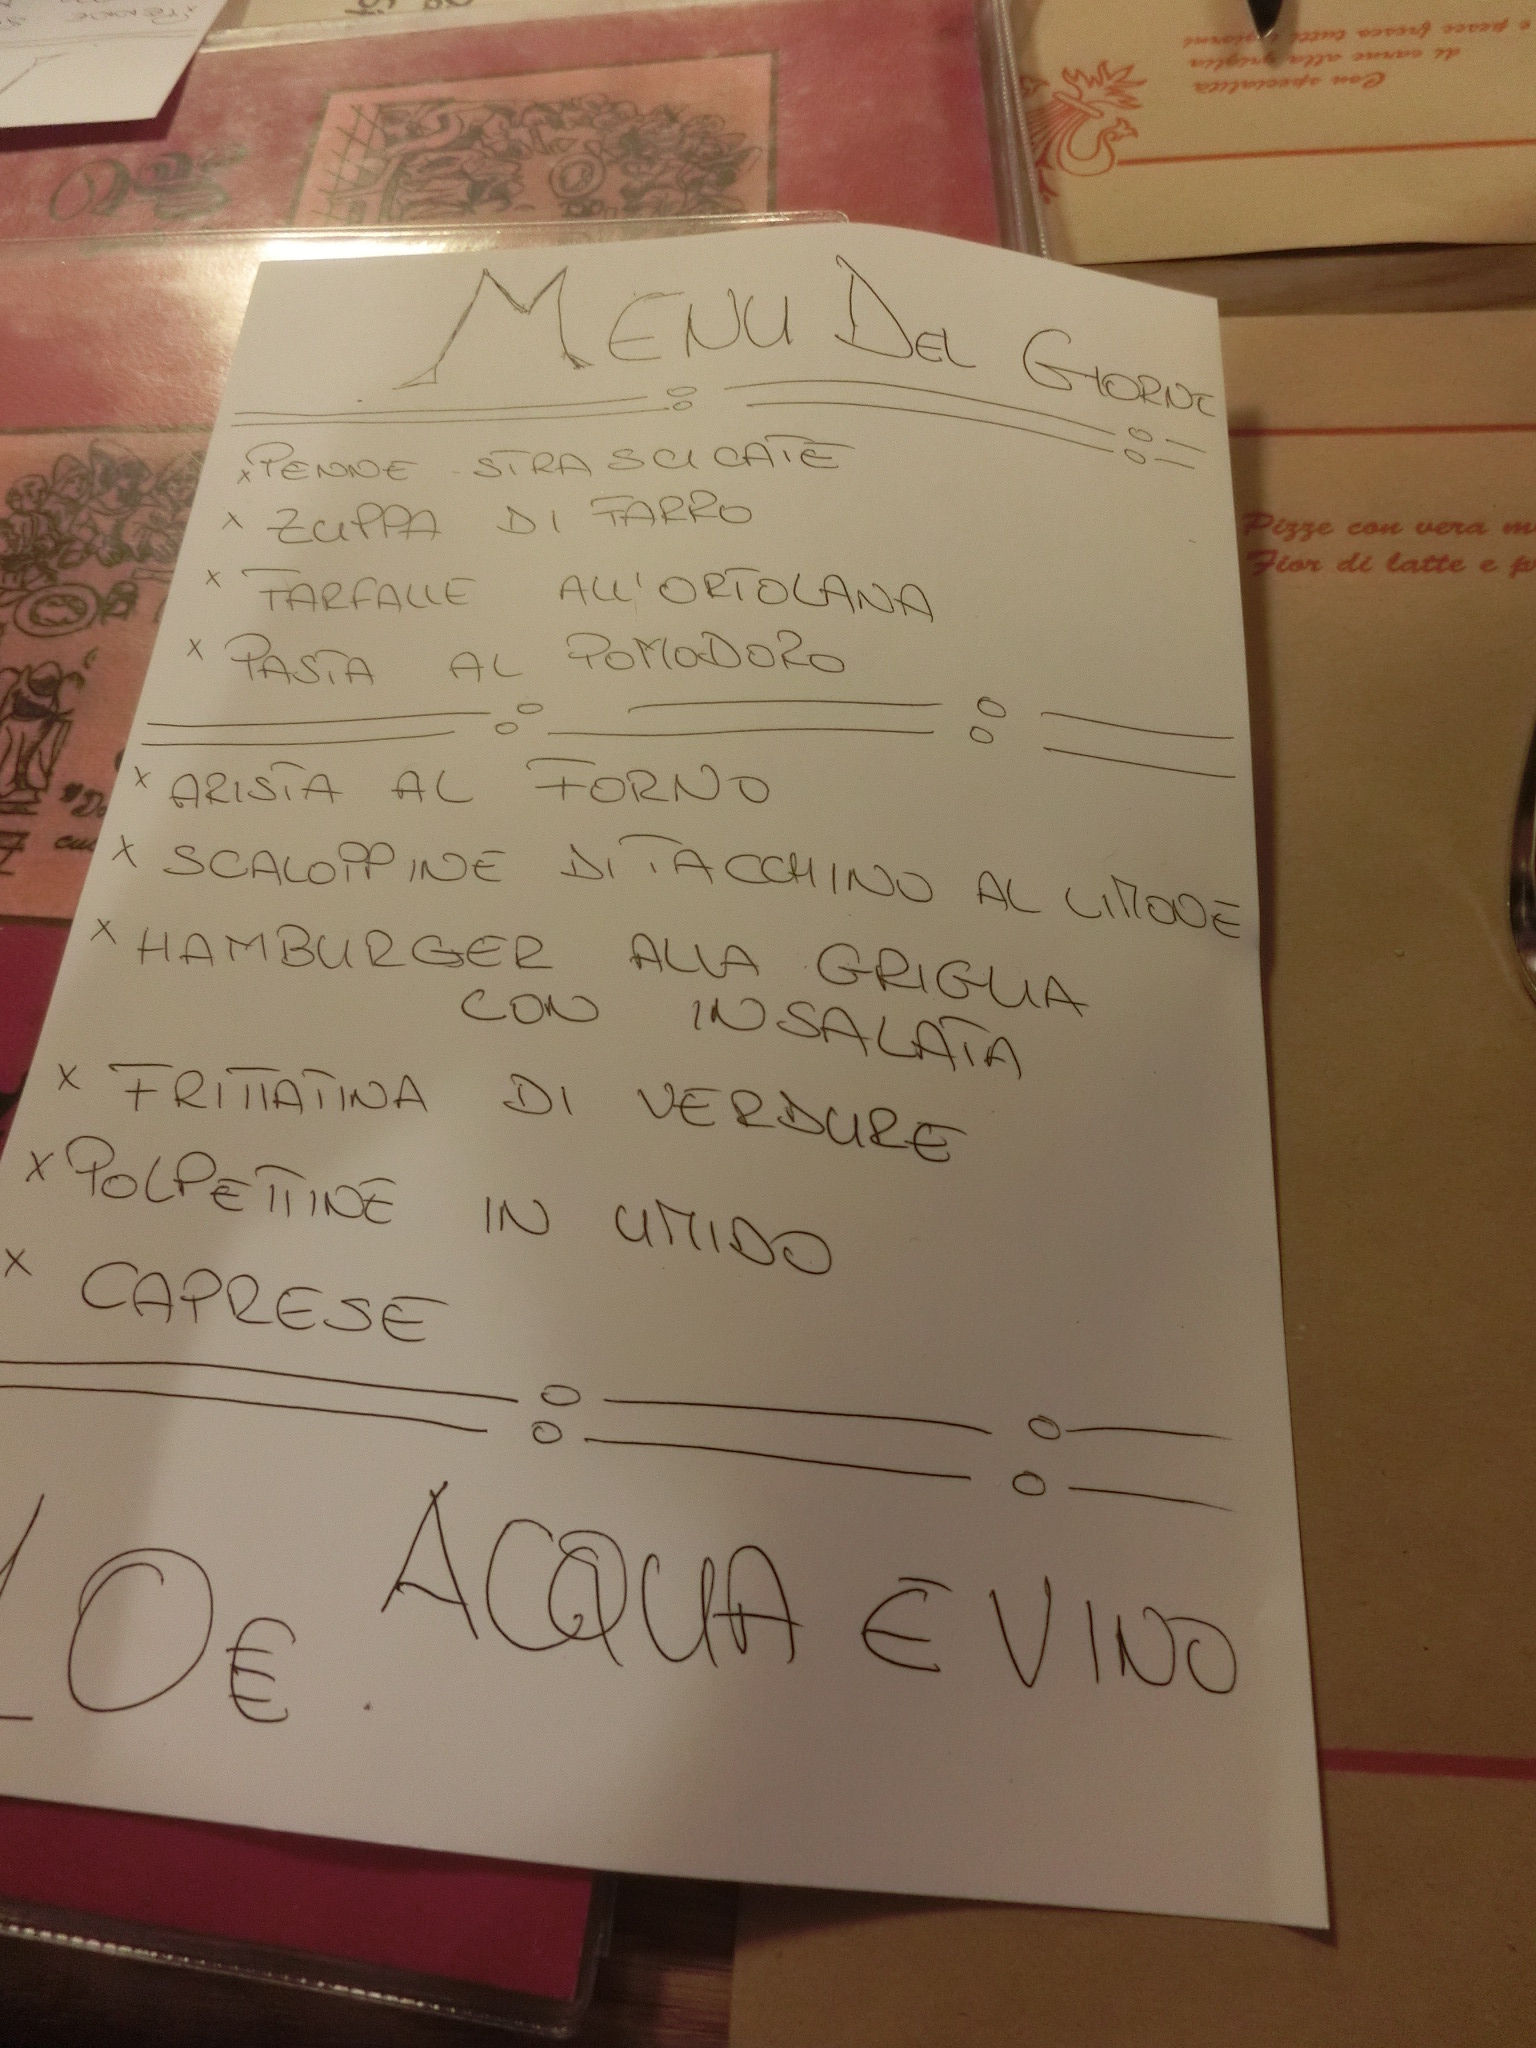 MENU DEL GIORNO
x PENNE STRASCICATE
x ZUPPA DI FARRO
x FARFALLE ALL'ORTOLANA
x PASTA AL POMODORO
x ARISTA AL FORNO
x SCALOPPINE DI TACCHINO AL LIMONE
x HAMBURGER ALLA GRIGLIA
CON INSALATA
x FRITTATINA DI VERDURE
x POLPETTINE IN UMIDO
x CAPRESE
10€. ACQUA E VINO
Con specialità
di carne alla griglia
e pesce fresco tutti i giorni
Pizze con vera m
Fior di latte e p